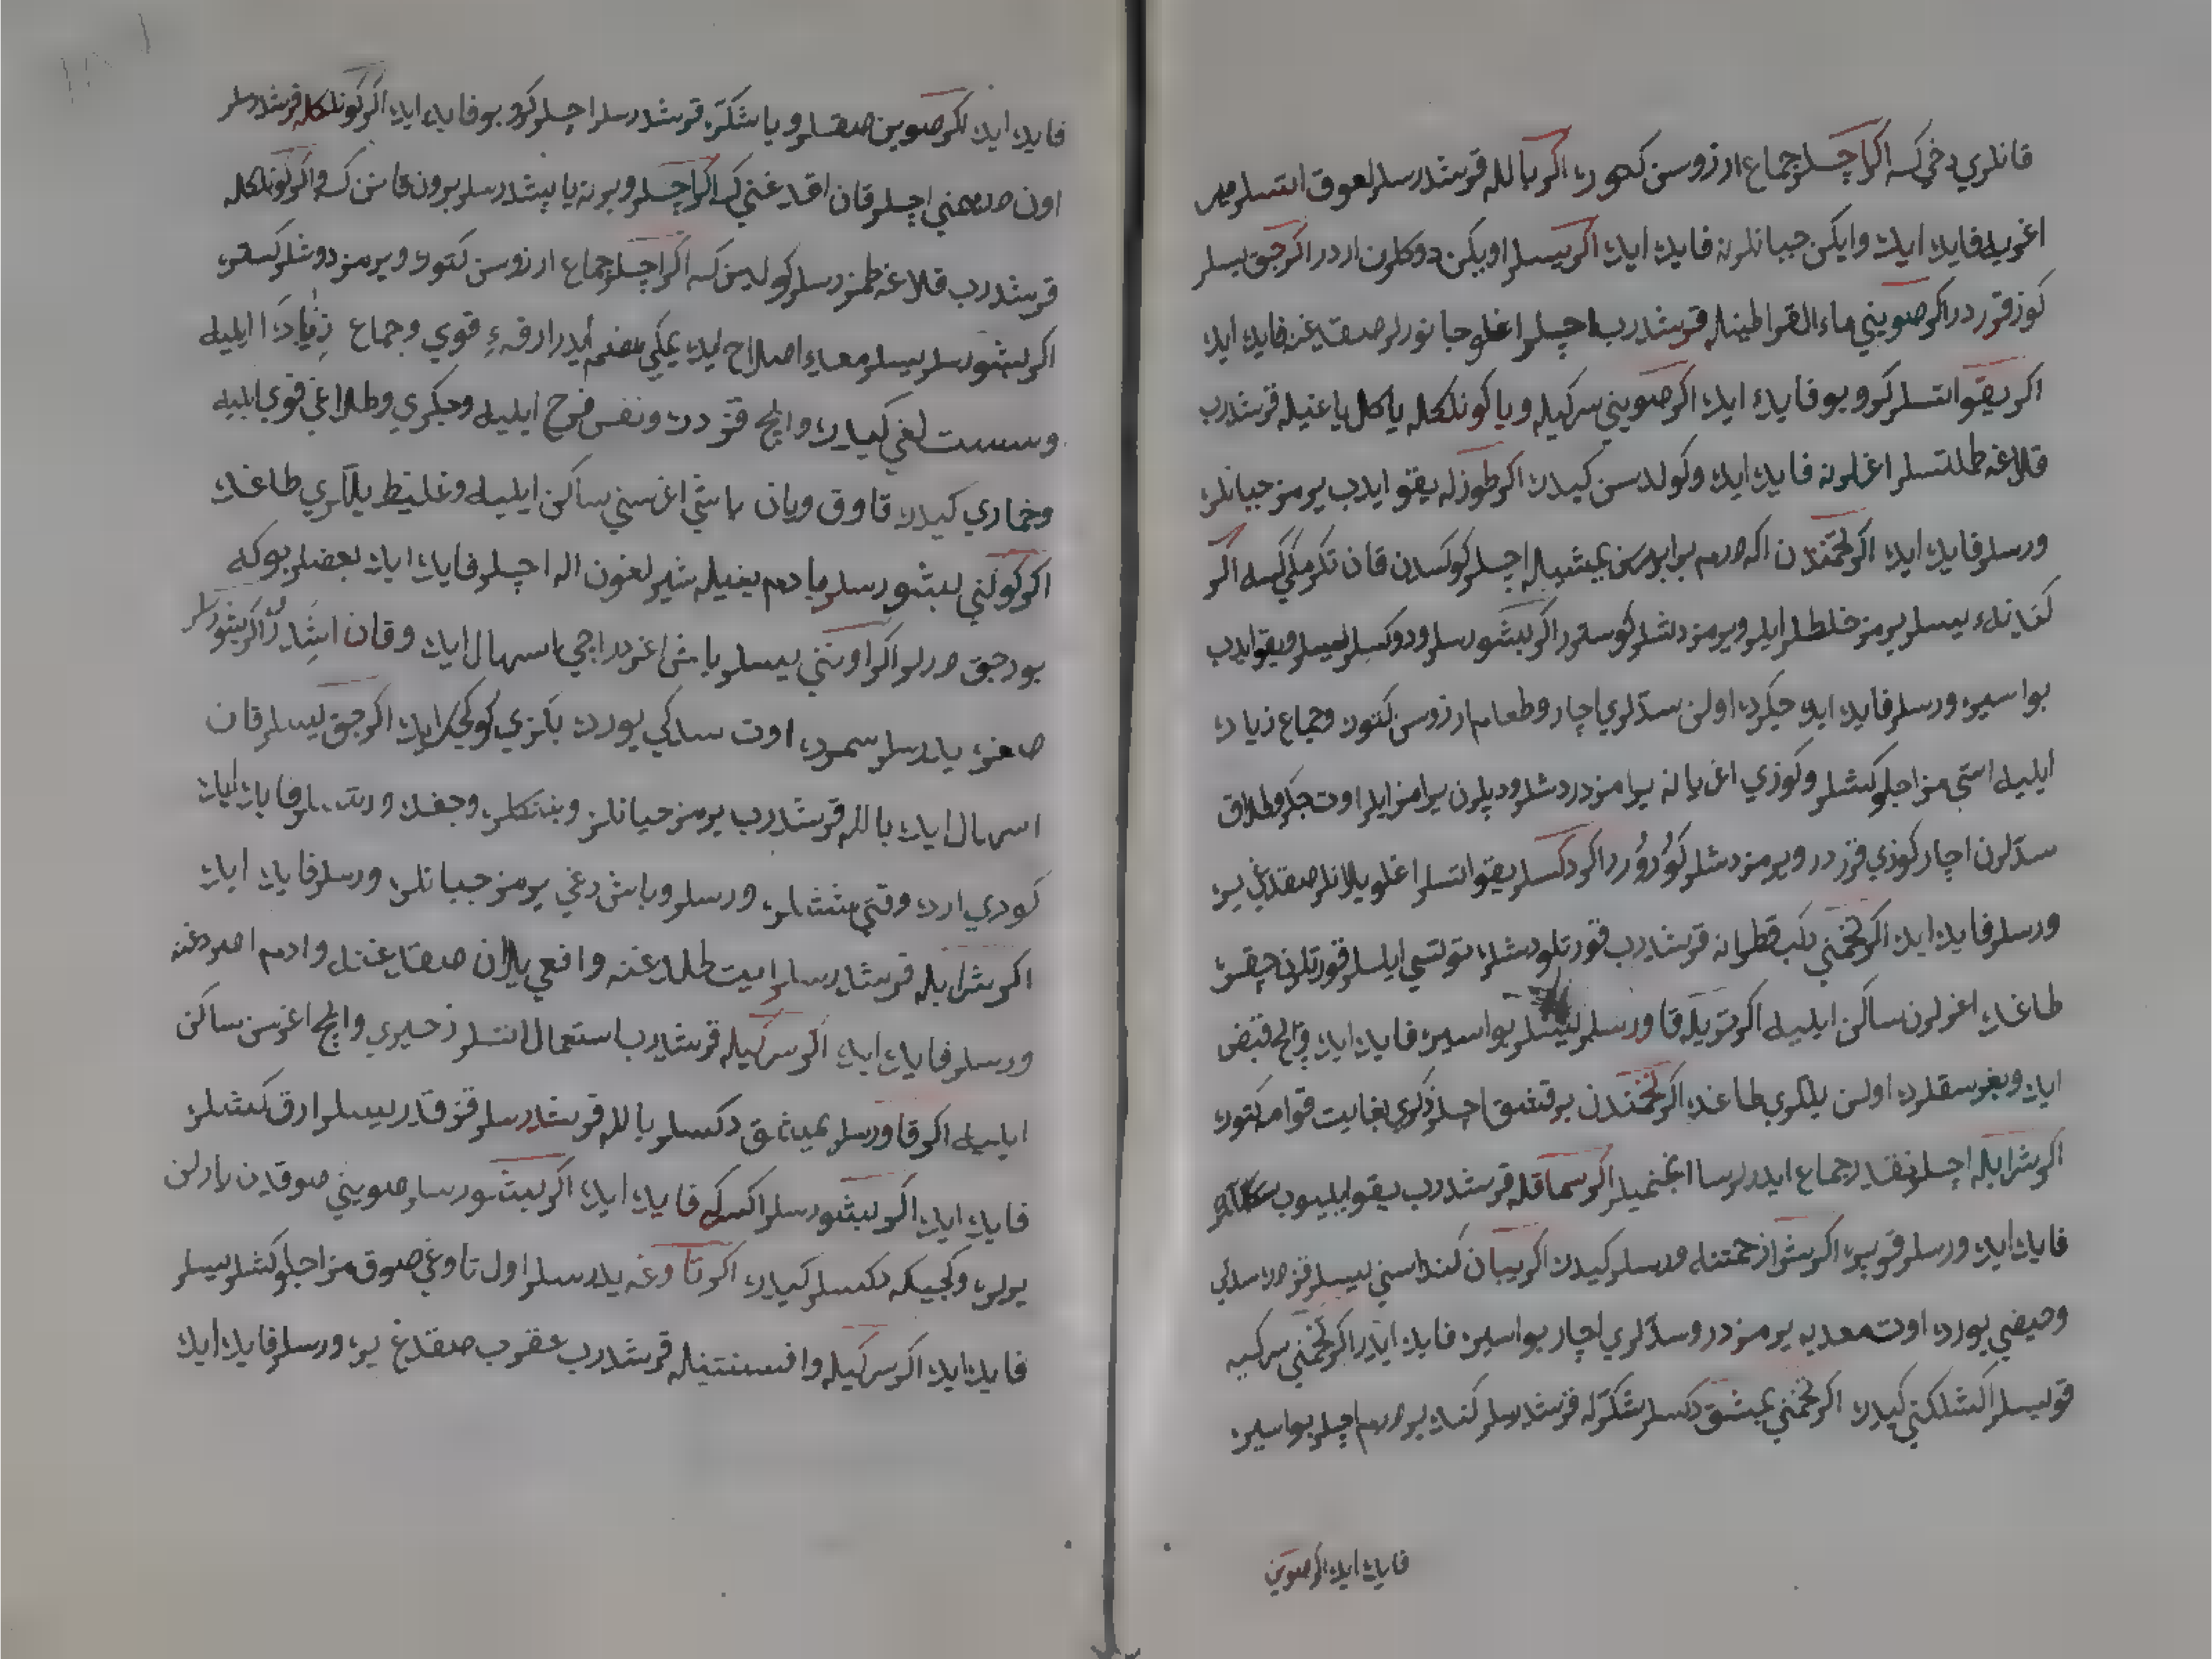 قانلري دخي كسه اكر اچسلر جماع ارزوسن كتورر اكر بالله قرشدرسلر لعوق اتسلر
اغزيله فايده ايده وايكن جبانلرنه فايده ايده اكر يسلر اوييكن دوكلرن اردر اكر چق يسلر
كوز قزردر اكر صويني ماء القراطينله قرشدرب اچسلر اغلو جانورلر صقديغنه فايده ايده
اكر يقو اتسلر كرو بو فايده ايده اكر صويني سركيله ويا كونلكله يا كل ياغيله قرشدرب
قلاغه طملتسلر اغلرنه فايده ايده وكولدسن كيدره اكر طوزله يقو ايدب يرمز جبانلره
ورسلر فايده ايده اكر تخمندن اكه درهم برابرسن يمشيله اچسلر كوكسدن قان تكرمكي كسه اكر
يسلر يرمز خلطلر ايلر ويرمز دشلر كوسترر اكر بشورسلر ودوكسلر ويقو ايدب
بواسيره ورسلر فايده ايده جكرده اولن سدلري اچار وطعام ارزوسن كتوره وجماع زياده
ايليه استي مزاجلو كشلر وكوزي اغريانه يرامز در دشلر وديلرن يرامز ايلر اوت جكر وطلاق
سدلرن اچار كوزي قزدر ويرمز دشلر كوردورر اكر دكسلر يقو اتسلر اغلو يلانلر صقدغي يره
ورسلر فايده ايده اكر تخمني دكب قطرانه قرشدرب قورتلو دشلره توتسي ايلسلر قورتلرن چقره
طاغده اغزلرن ساكن ايليه اكر تزيله قاورسلر يسلر بواسيره فايده ايده وايچ قبض
ايده وبغرسقلرده اولن يللري طاغده اكر تخمندن بر قشق اچسلر ذكري بغايت قوام كتوره
اكر شرابله اچسلر نقدر جماع ايدرلرسا انجنميلر اكر سماقله قرشدرب يقو ايليوب
فايده ايده ورسلر قو يره اكر شراز حمتنه ورسلر كيدره اكر يبان كنداسني يسلر قزدره سدكي
وحيضي يورده اوت معديه يرمزدر وسدلري اچار بواسيره فايده ايدر اكر تخمني سركيه
قويسلر اكشلكني كيدره اكر تخمني يمشق دكسلر شكرله قرشدرسلر كنده بر درهم اچسلر بواسيره
فايده ايده اكر صوين
فايده ايده اكر صوين صقسلر ويا شكره قرشدرسلر اچسلر كرو بو فايده ايده اكر كونلكله قرشدرسلر
اون درهمني اچسلر قان اقدغني كسه اكر اچسلر وبرنه يا پشدرسلر برون قانن كسه واكر كونلكله
قرشدرب قلاغه طمزرسلر كولدين كسه اكر اچسلر جماع ارزوسن كتوره ويرمز دوشلر كستره
اكر بشورسلر يسلر معديه اصلاح ايده يمكي هضم ايدر ارقهء قوي وجماع زياده ايليه
وسستلغي كيدره وايچ قزدره ونفس فرح ايليه وجكري وطلاغي قوي ايليه
وخماري كيدره قاوق ويان باشي اغرسني ساكن ايليه وغليظ يللري طاغده
اكر كوكني بشورسلر بادم يغيله شيرلغنون اله اچسلر فايده ايده بعضلر بوكه
بورجق ديرلر اكر اوتني يسلر باش اغرددر اچي اسهال ايده وقان اشدر اكر يتورلر
صغره يدرسلر سمره اوت سدكي يورده بكزي كوكچك ايده اكر چق يسلر قان
اسهال ايده بالله قرشدرب يرمز جبانلره وبنكلره وجغده ورسلر فايده ايده
كودي ارده وقتي مشلره ورسلر وباش دغي يرمز جبانلره ورسلر فايده ايده
اكر شرابله قرشدرسلر ايت طلدغنه وافعي يلان صقدغنه وادم اصردغنه
ورسلر فايده ايده اكر سركيله قرشدرب استعمال اتسلر زحيري وايچ اغرسن ساكن
ايليه اكر قاورسلر يمشق دكسلر بالله قرشدرسلر قز قدر يسلر ارق كشلره
فايده ايده اكر بشورسلر اكسركه فايده ايده اكر بشورسلر صويني صوقدن يارلن
يرلره وكجيكه دكسلر كيدره اكر تاوغه يدرسلر اول تاوغي صوق مزاجلو كشلر يسلر
فايده ايده اكر سركيله وافسنتينله قرشدرب عقرب صقدغي يره ورسلر فايده ايده